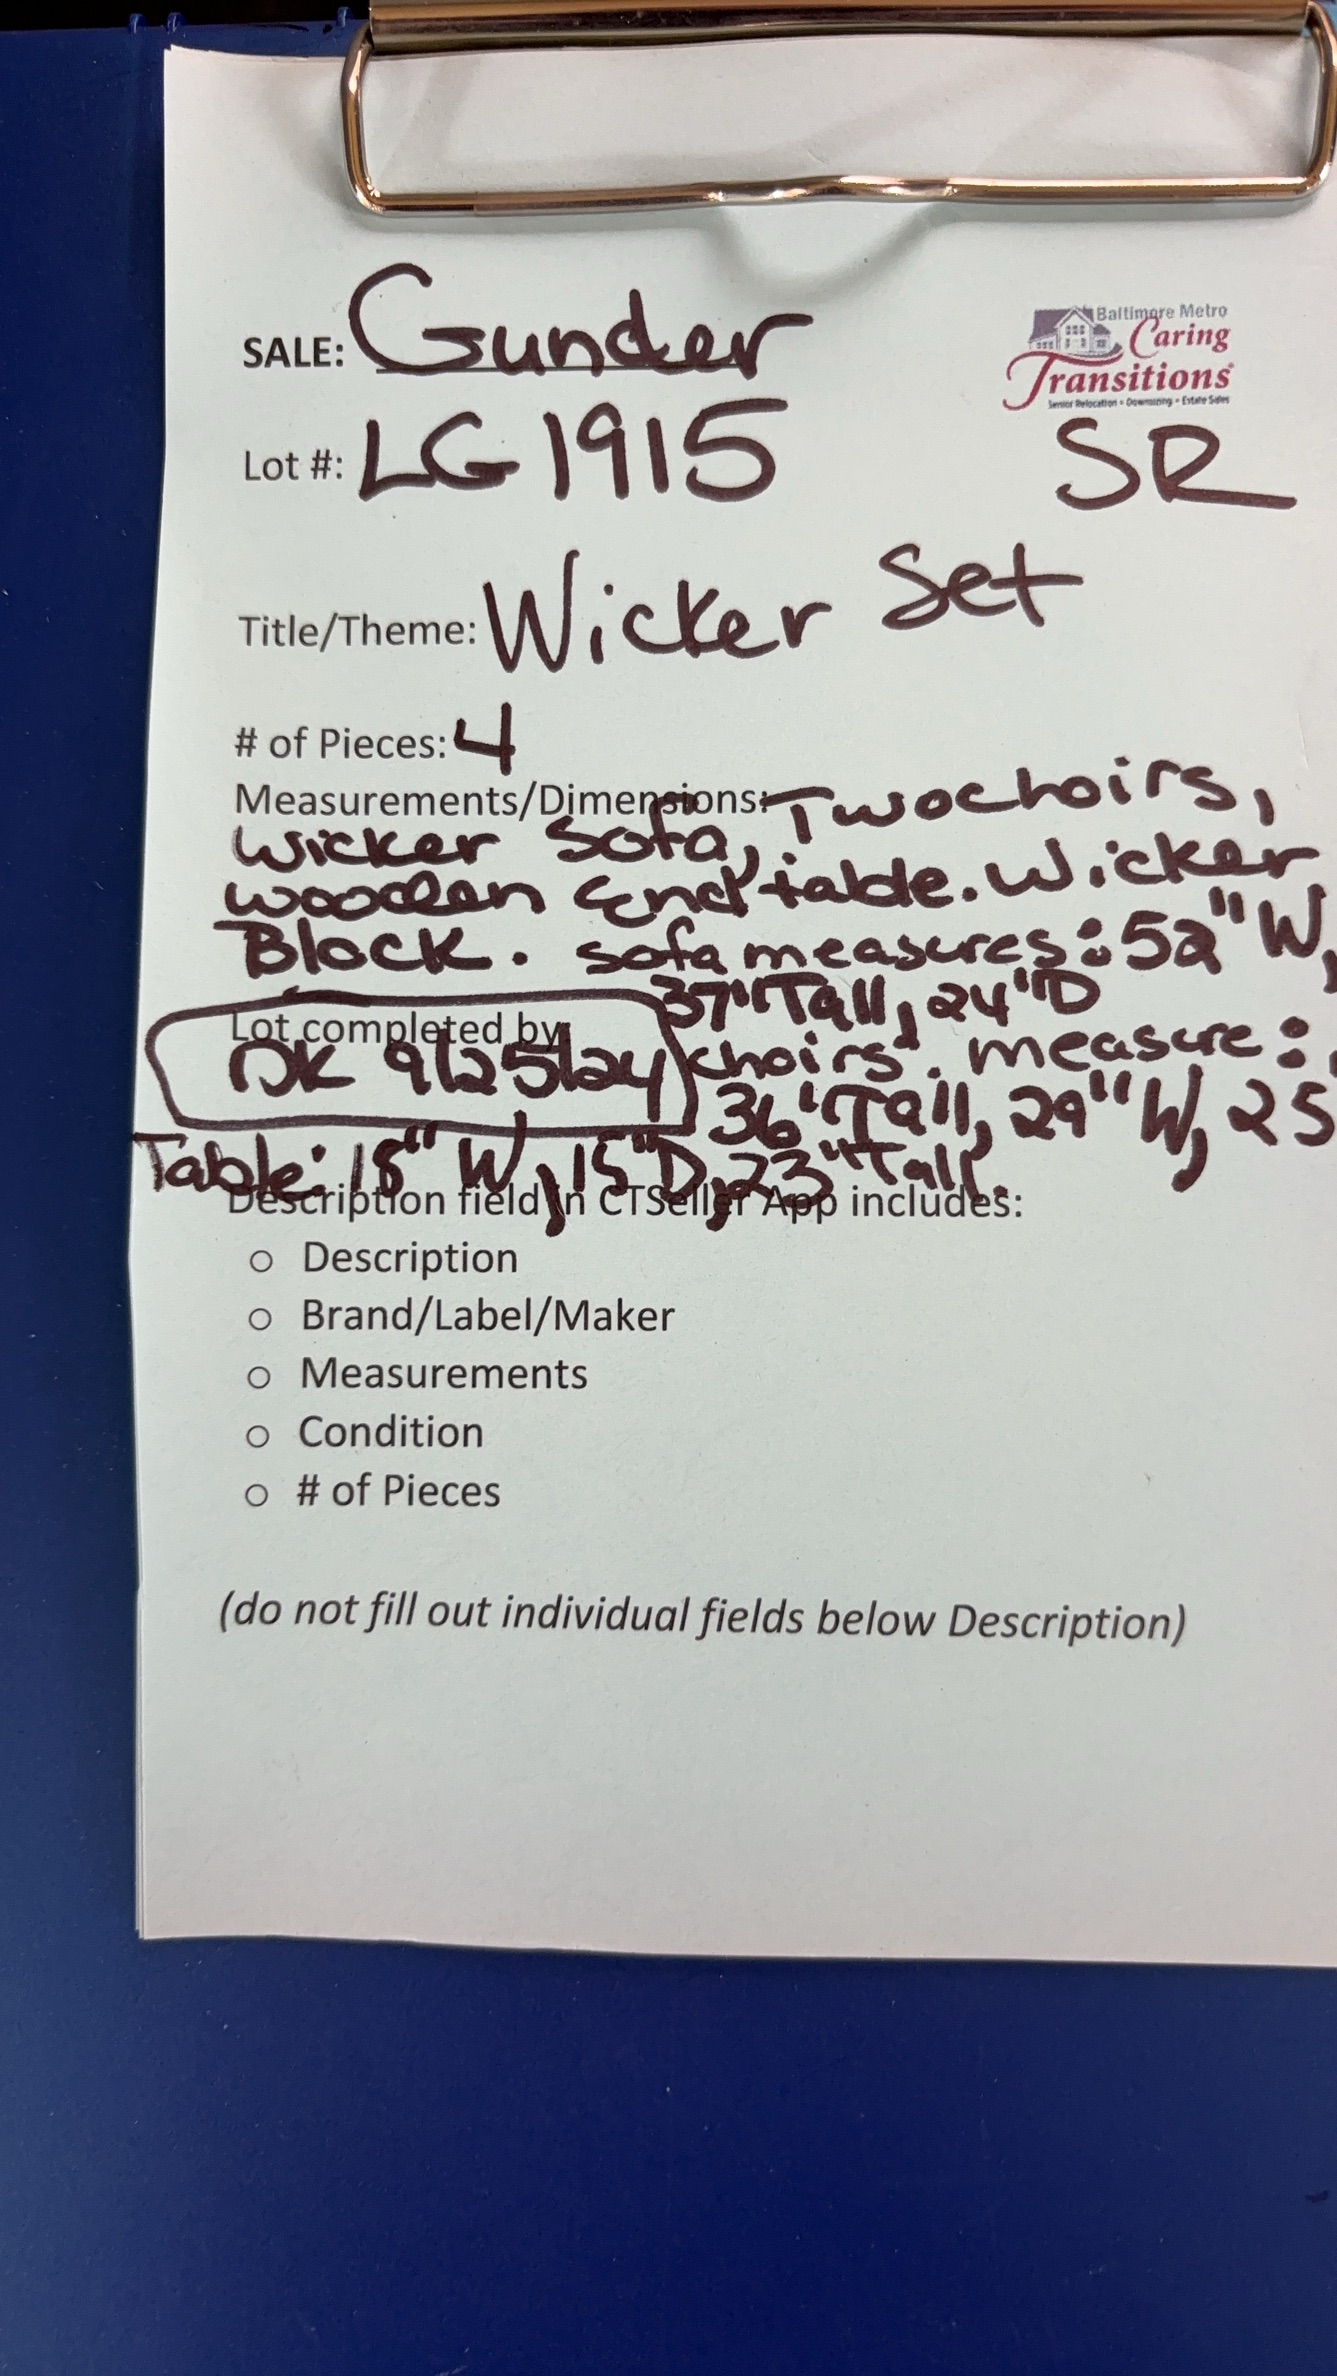 Baltimore Metro
Caring
Transitions
Senior Relocation • Downsizing • Estate Sales
SALE: Gunder
Lot #: LG 1915 SR
Title/Theme: Wicker Set
# of Pieces: 4
Measurements/Dimensions: Two choirs,
wicker sofa,
wooden End table. Wicker
Block. sofa measures: 52" W,
37" Tall, 24" D
Lot completed by:
DK 9/25/24
choirs. measure:
36" Tall, 29" W, 25
Table: 18" W, 15" D, 23" Tall.
Description field in CTSeller App includes:
o Description
o Brand/Label/Maker
o Measurements
o Condition
o # of Pieces
(do not fill out individual fields below Description)